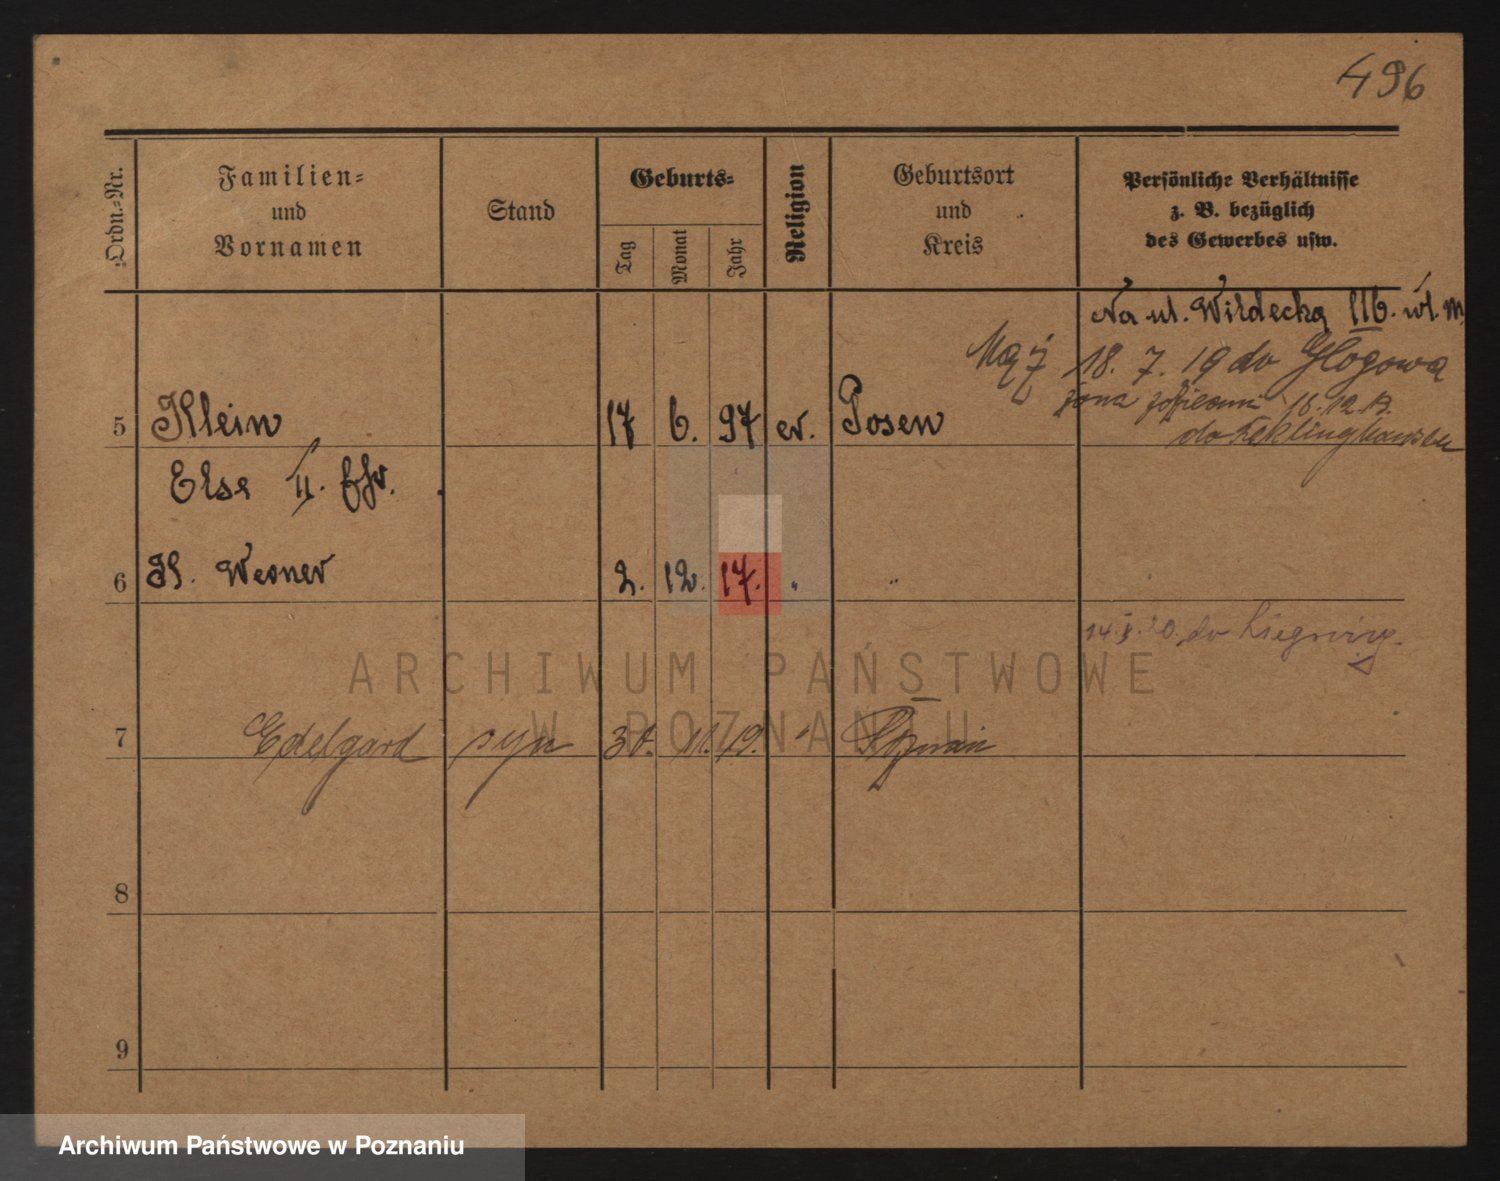 496
Ordn.-Nr.
Familien-
und
Vornamen
Stand
Geburts-
Tag
Monat
Jahr
Religion
Geburtsort
und
Kreis
Persönliche Verhältnisse
z. B. bezüglich
des Gewerbes usw.
Na ul. Wildecką 116. wł. m
Mąż 18. 7. 19 do Głogowa
żona 18.12.19.
do Reklinghausen
5 Klein 17 6. 97 ev. Posen
Else II. Ehr.
6 Kl. Werner 2. 12. 17. " "
14. X. 20. do Liegnitz.
ARCHIWUM PAŃSTWOWE
W POZNANIU
7 Edelgard syn 30. 11. 19. " Poznań
8
9
Archiwum Państwowe w Poznaniu